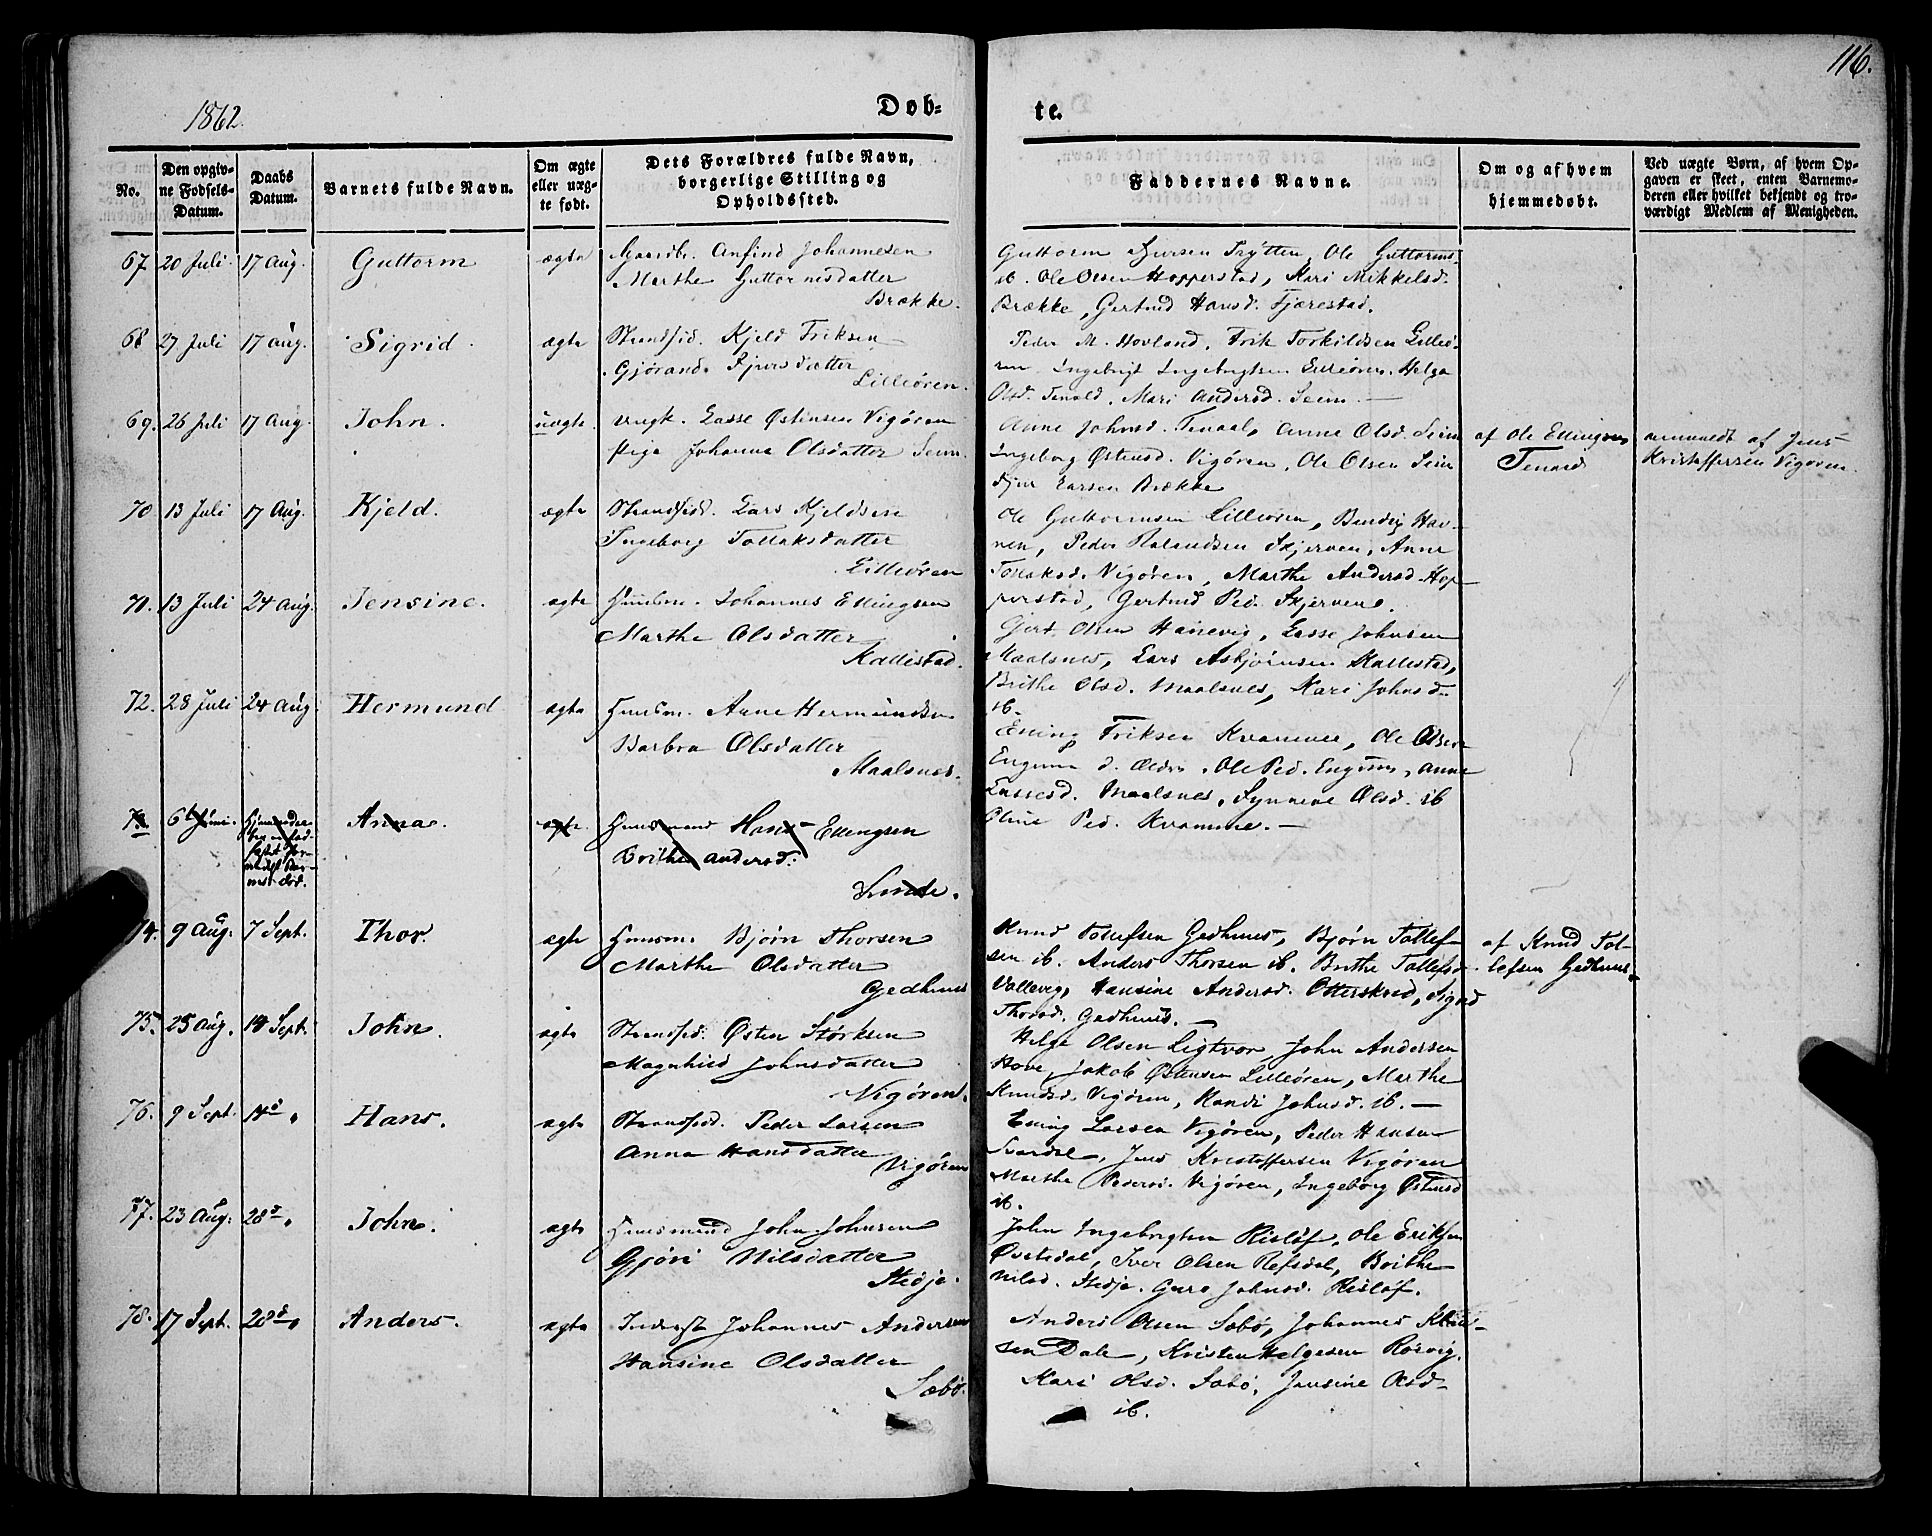 116.
1862.
Døb-
te.
No.
Den opgiv-
ne Fødsels-
Datum.
Daabs
Datum.
Barnets fulde Navn.
Om ægte
eller uæg-
te født.
Dets Forældres fulde Navn,
borgerlige Stilling og
Opholdssted.
Faddernes Navne.
Om og af hvem
hjemmedøbt.
Ved uægte Børn, af hvem Op-
gaven er skeet, enten Barnemo-
deren eller hvilket bekjendt og tro-
værdigt Medlem af Menigheden.
67 20 Juli. 17 Aug. Guttorm ægte Gaardbr. Anfind Johannesen
Marthe Guttormsdatter
Brække.
Guttorm Sjursen Trytten, Ole Guttorms.
ib. Ole Olsen Hopperstad, Kari Mikkelsd.
Brække, Gertrud Hansd. Fjærestad.
68 27 Juli 17 Aug. Sigrid. ægte Strandsid. Kjeld Eriksen
Gjørand Sjursdatter
Lilleøren.
Peder M. Hovland, Erik Torkildsen Lilleø-
ren Ingebrigt Ingebrigtsen Lilleøren, Helga
Olsd. Tenold, Mari Andersd. Seim. —
69. 26 Juli 17 Aug. John. uægte. ungk. Lasse Østensen Vigøren
Pige Johanna Olsdatter Seim.
Anne Johnsd. Tenaal, Anna Olsd. Seim
Ingeborg Østensd. Vigøren, Ole Olsen Seim
Sjur Larsen Brække
af Ole Ellingsen
Tenold
anmeldt af Jens
Kristoffersen Vigøren.
70 13 Juli 17 Aug. Kjeld. ægte Strandsid. Lars Kjeldsen
Ingeborg Tollaksdatter
Lilleøren
Ole Guttormsen Lilleøren, Bendix Hav-
nen, Peder Rolandsen Skjerven, Anne
Tollaksd. Vigøren, Marthe Andersd. Hop-
perstad, Gertrud Ped. Skjervene.
71. 13 Juli 24 Aug. Jensine. ægte Huusm. Johannes Ellingsen
Marthe Olsdatter
Kallestad.
Gjert Olsen Hanevig, Lasse Johnsen
Maalsnes, Lars Askjørnsen Kallestad,
Brithe Olsd. Maalsnes, Kari Johnsd.
ib.
72. 28 Juli 24 Aug. Hermund ægte Huusm. Arne Hermundsen
Barbra Olsdatter
Maalsnes.
Elling Eriksen Kvamme, Ole Olsen
Engum d. Ældre, Ole Ped. Engum, Anna
Lassesd. Maalsnes, Synneve Olsd. ib
Oline Ped. Kvamme. —
73 6te Juni. Anna. ægte Huusmand Hans Ellingsen
Brithe Andersd.
Sunde.
74. 9 Aug. 7 Sept. Thor. ægte Huusm. Bjørn Thorsen
Marthe Olsdatter
Gedhuus
Knud Tollefsen Gedhuus, Bjørn Tollef-
sen ib. Anders Thorsen ib. Brithe Tollefsd.
Vallevig, Hansine Andersd. Otterskred, Sigrid
Thorsd. Gedhuus. —
af Knud Tol-
lefsen Gedhuus
75. 25 Aug. 14 Sept. John. ægte Strandsid. Østen Størksen
Magnhild Johnsdatter
Vigøren.
Helge Olsen Ligtvor, John Andersen
Hove, Jakob Østensen Lilleøren, Marthe
Knudsd. Vigøren, Randi Johnsd. ib. —
76. 9 Sept. 14d „ Hans. ægte Strandsid. Peder Larsen
Anna Hansdatter
Vigøren
Elling Larsen Vigøren, Peder Hansen
Svardal, Jens Kristoffersen Vigøren
Marthe Pedersd. Vigøren, Ingeborg Østensd
ib.
77. 23 Aug. 28d „ John. ægte Huusmand John Johnsen
Gjøri Nilsdatter
Stedje.
John Ingebrigtsen Risløf, Ole Eriksen
Øvstedal, Iver Olsen Refsdal, Brithe
Nilsd. Stedje. Guro Johnsd. Risløf.
78. 17 Sept. 28d „ Anders. ægte Inderst Johannes Andersen
Hansine Olsdatter
Sæbø.
Anders Olsen Sæbø, Johannes
sen Dale, Kristen Helgesen Rørvig,
Kari Olsd. Sæbø, Jensine Olsd-
ib.